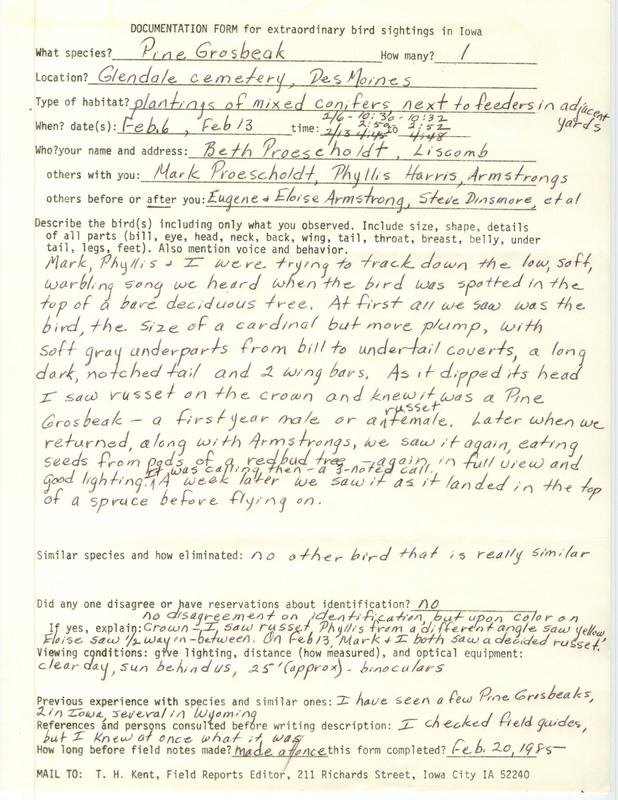 DOCUMENTATION FORM for extraordinary bird sightings in Iowa
What species? Pine Grosbeak How many? 1
Location? Glendale cemetery, Des Moines
Type of habitat? plantings of mixed conifers next to feeders in adjacent yards
2/6 - 10:30 - 10:32
When? date(s): Feb.6, Feb 13 time: 2/13 4:45 to 4:48
2:50 2:52
Who? your name and address: Beth Proescholdt, Liscomb
others with you: Mark Proescholdt, Phyllis Harris, Armstrongs
others before or after you: Eugene & Eloise Armstrong, Steve Dinsmore, et al
Describe the bird(s) including only what you observed. Include size, shape, details
of all parts (bill, eye, head, neck, back, wing, tail, throat, breast, belly, under
tail, legs, feet). Also mention voice and behavior.
Mark, Phyllis & I were trying to track down the low, soft,
warbling song we heard when the bird was spotted in the
top of a bare deciduous tree. At first all we saw was the
bird, the size of a cardinal but more plump, with
soft gray underparts from bill to undertail coverts, a long
dark, notched tail and 2 wing bars. As it dipped its head
I saw russet on the crown and knew it was a Pine
Grosbeak - a first year male or a russet female. Later when we
returned, along with Armstrongs, we saw it again, eating
seeds from pods of a redbud tree - again in full view and
good lighting. It was calling then - a 3-noted call. A week later we saw it as it landed in the top
of a spruce before flying on.
Similar species and how eliminated: no other bird that is really similar
Did any one disagree or have reservations about identification? no
no disagreement on identification, but upon color on
If yes, explain: crown - I saw russet, Phyllis from a different angle saw yellow,
Eloise saw 1/2 way in-between. On Feb 13, Mark & I both saw a decided russet.
Viewing conditions: give lighting, distance (how measured), and optical equipment:
clear day, sun behind us, 25' (approx) - binoculars
Previous experience with species and similar ones: I have seen a few Pine Grosbeaks,
2 in Iowa, several in Wyoming
References and persons consulted before writing description: I checked field guides,
but I knew at once what it was
How long before field notes made? made at once this form completed? Feb. 20, 1985
MAIL TO: T. H. Kent, Field Reports Editor, 211 Richards Street, Iowa City IA 52240